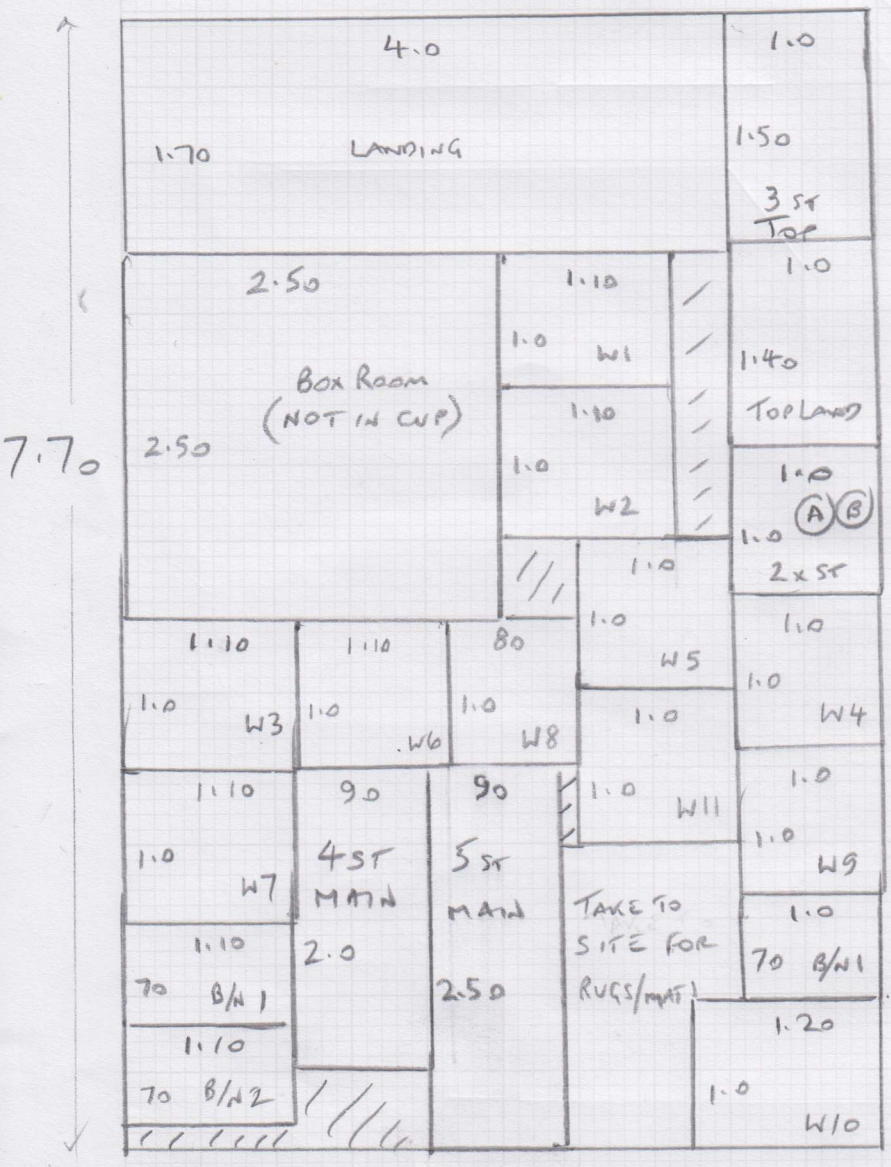 4.0
1.70
LANDING
1.0
1.50
3 ST
TOP
1.0
1.40
TOP LAND
7.70
2.50
BOX ROOM
(NOT IN CUP)
2.50
1.10
1.0
W1
1.10
1.0
W2
1.0
A B
1.0
2 x ST
1.0
1.0
W5
1.0
1.0
W4
1.10
1.0
W3
1.10
1.0
W6
80
1.0
W8
1.0
1.0
W11
1.0
1.0
W9
1.10
1.0
W7
90
4 ST
MAIN
2.0
90
5 ST
MAIN
2.50
TAKE TO
SITE FOR
RUGS/MAT
1.0
70 B/N 1
1.10
70 B/N 1
1.10
70 B/N 2
1.20
1.0
W10